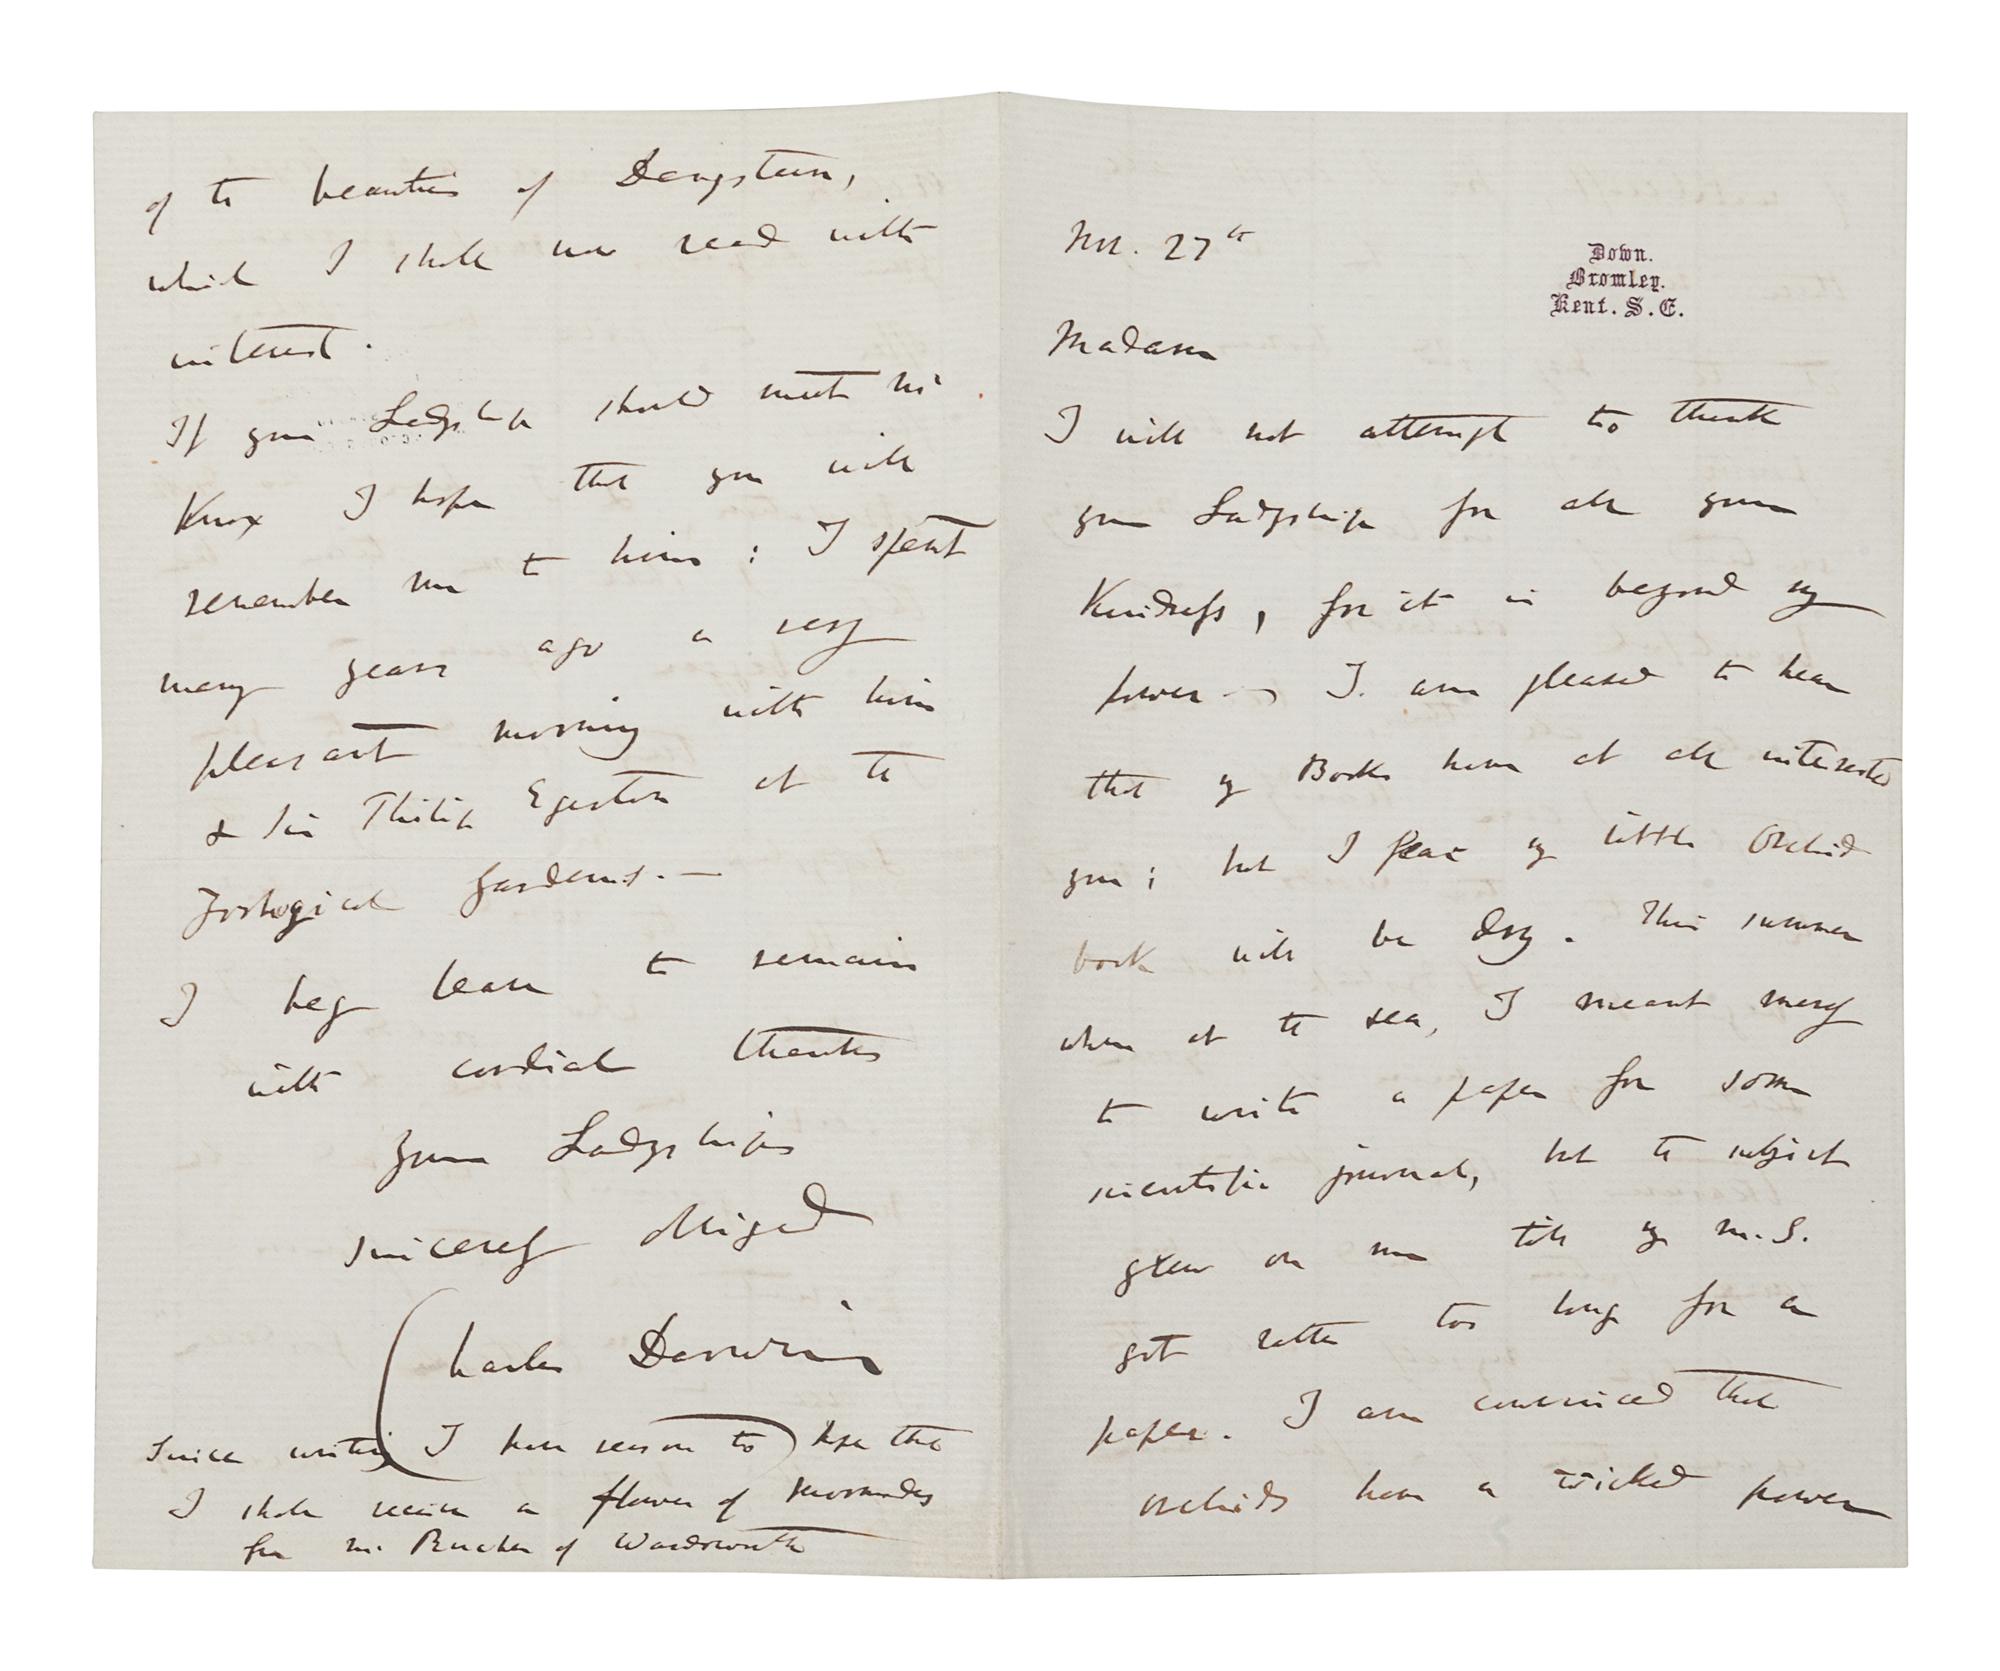 Nov. 27th
Down.
Bromley.
Kent. S. E.
Madam
I will not attempt to thank
your Ladyship for all your
Kindness, for it is beyond my
power — I am pleased to hear
that my Books have at all interested
you; but I fear my little Orchid
book will be dry. This summer
when at the sea, I meant merely
to write a paper for some
scientific journal, but the subject
grew on me till my M.S.
got rather too long for a
paper. I am convinced that
orchids have a wicked power
of the beauties of Dangstein,
which I shall now read with
interest.
If your Ladyship should meet Mr
Knox I hope that you will
remember me to him: I spent
many years ago a very
pleasant morning with him
& Sir Philip Egerton at the
Zoological Gardens. —
I beg leave to remain
with cordial thanks
your Ladyships
sincerely obliged
Charles Darwin
Since writing I have reason to hope that
I shall receive a flower of Mormodes
from Mr. Rucker of Wandsworth